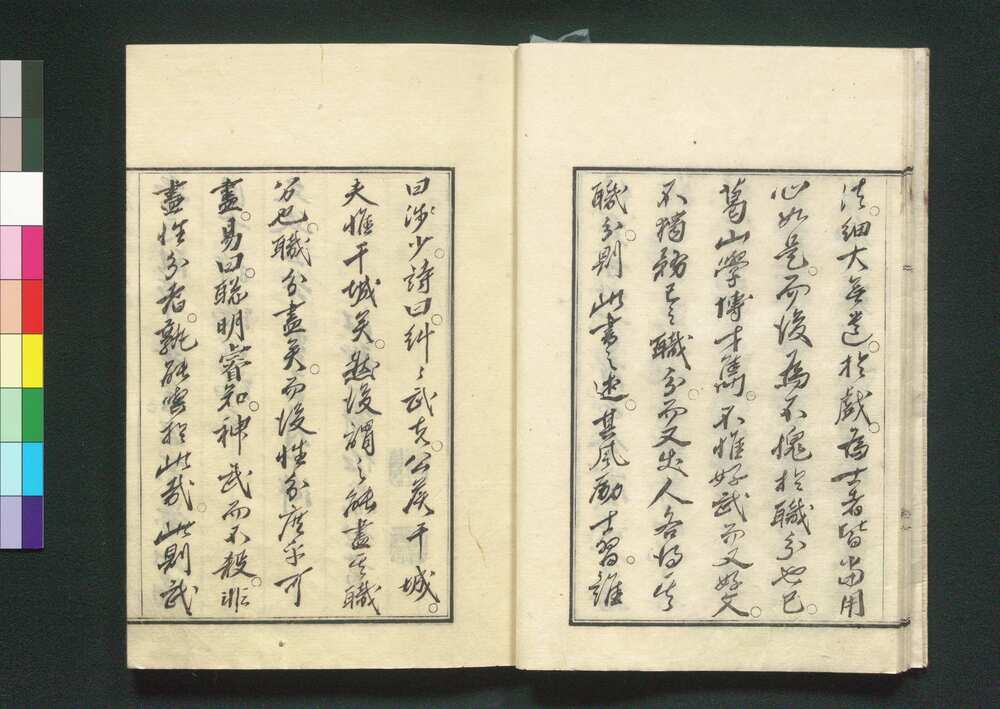 法。細大無遺。於戲。為士者皆當用
心如是。而後為不愧於職分也已。
葛山學博才雋。不惟好武而又好文。
不獨務己之職分。而又使人各得其
職分。則此書之述。其風勵士習。誰
曰涉少。詩曰。糾々武夫。公侯干城。
夫惟干城矣。然後謂之能盡其職
分也。職分盡矣。而後性分庶乎可
盡。易曰。聡明睿知。神武而不殺。非
盡性分者。孰能與於此哉。此則武